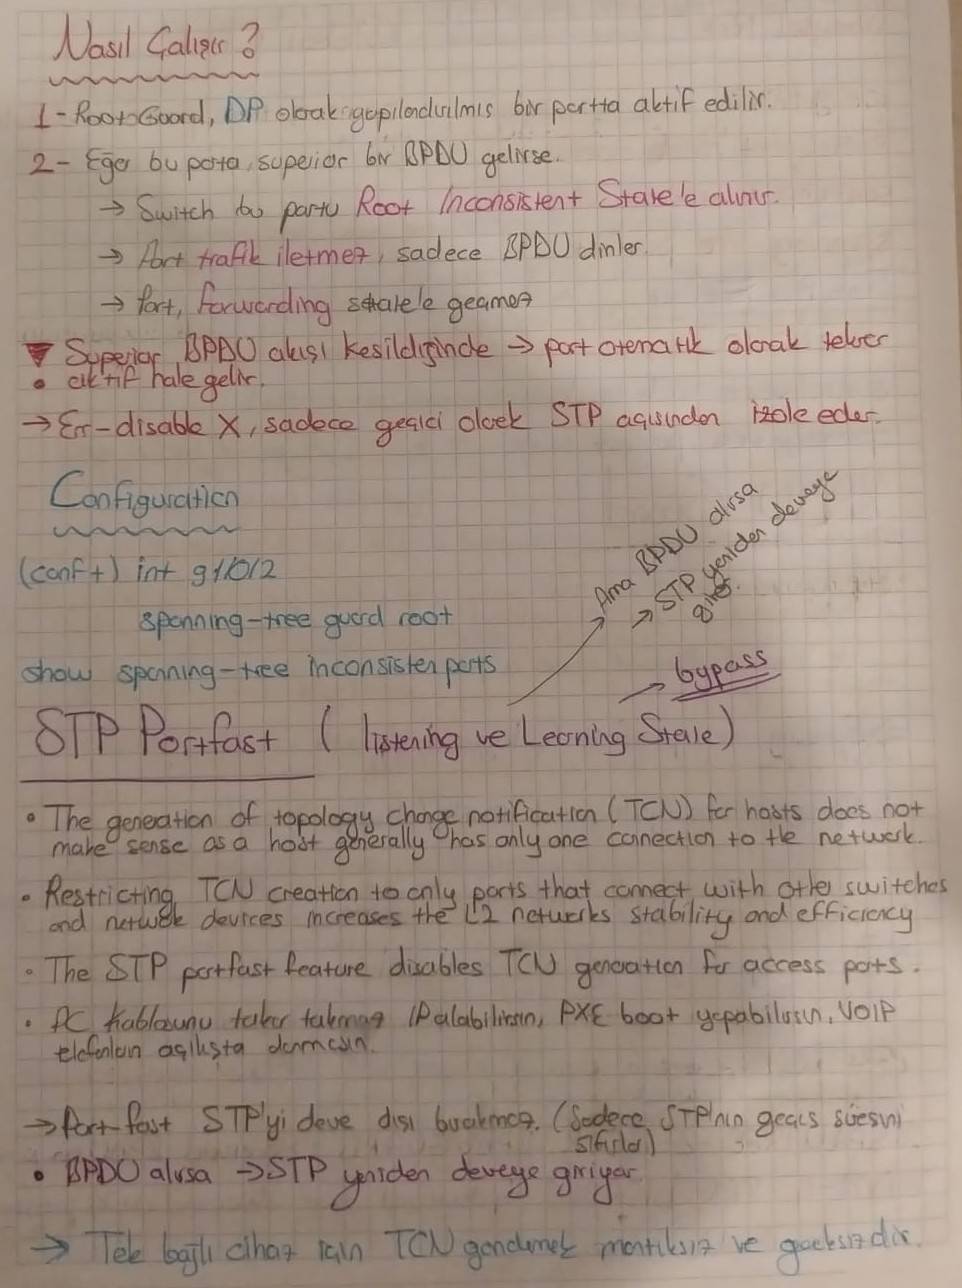 Nasıl Çalışır?
1- Root Guard, DP olarak yapılandırılmış bir portta aktif edilir.
2- Eğer bu porta, superior bir BPDU gelirse.
→ Switch bu portu Root Inconsistent State'e alınır.
→ Port trafik iletmez, sadece BPDU dinler.
→ Port, forwarding state'e geçmez
▼ Superior BPDU akışı kesildiğinde → port otomatik olarak tekrar
• aktif hale gelir.
→ Err-disable X, sadece geçici olarak STP açısından izole eder.
Configuration
(conf+) int g1/0/2
spanning-tree guard root
show spanning-tree inconsisten ports
Ama BPDU alırsa
→ STP yeniden devreye
girer.
→ bypass
STP Portfast ( listening ve Learning State)
• The generation of topology change notification (TCN) for hosts does not
make sense as a host generally has only one connection to the network.
• Restricting TCN creation to only ports that connect with other switches
and network devices increases the L2 networks stability and efficiency
• The STP portfast feature disables TCN generation for access ports.
• PC kablosunu takar takmaz IP alabilirsin, PXE boot yapabilirsin, VOIP
telefonların açılışta durmasın.
→ Port fast STP'yi devre dışı bırakmaz. (Sadece STP'nin geçiş süresini
sıfırlar)
• BPDU alırsa → STP yeniden devreye giriyor.
→ Tek bağlı cihaz için TCN göndermek mantıksız ve gereksizdir.